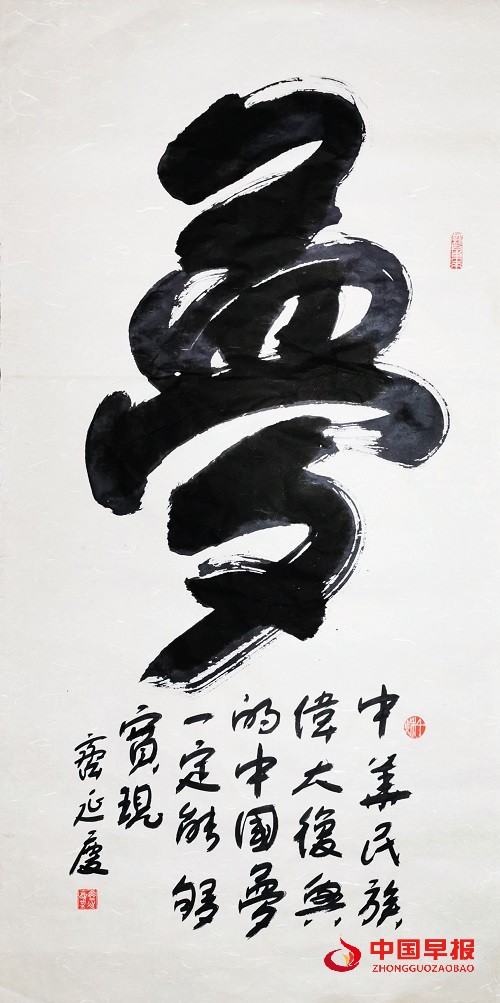 夢
中華民族
偉大復興
的中國夢
一定能够
實現
齊延慶
中国早报
ZHONGGUOZAOBAO